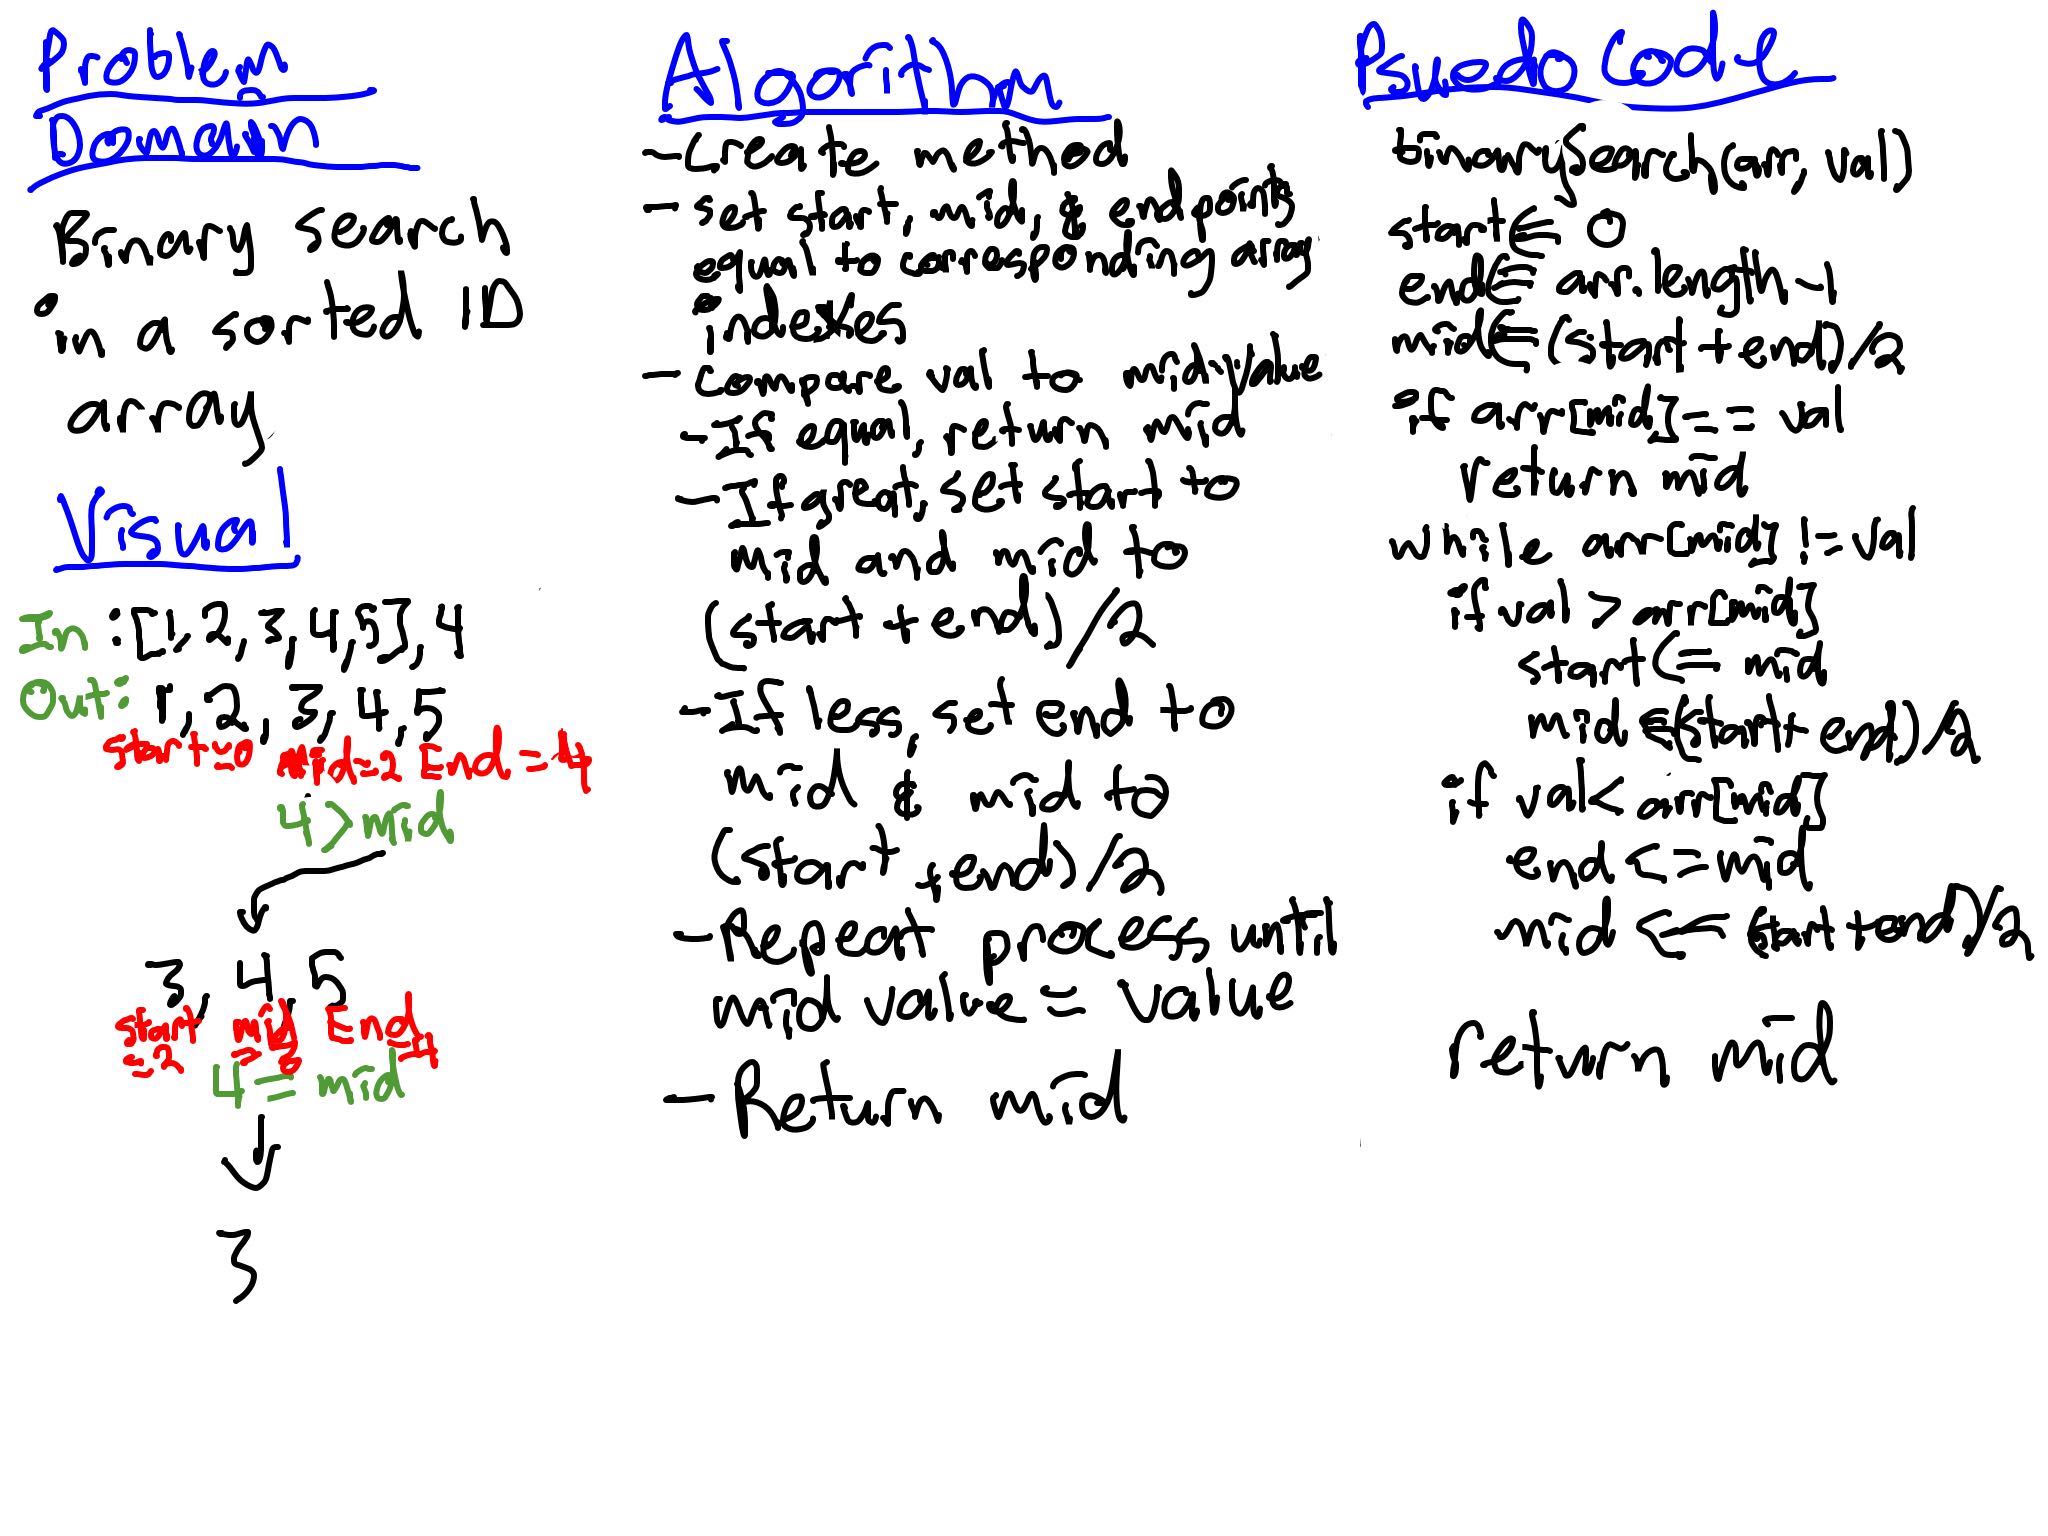 Problem
Domain
Binary search
in a sorted 1D
array
Visual
In :[1,2,3,4,5],4
Out: 1,2,3,4,5
start=0 Mid=2 End=4
4>mid
3,4,5
start mid End
=2 =3 =4
4=mid
3
Algorithm
-Create method
- set start, mid, & endpoints
equal to corresponding array
indexes
- Compare val to mid value
-If equal, return mid
-If great, set start to
mid and mid to
(start + end)/2
-If less, set end to
mid & mid to
(start +end)/2
-Repeat process until
mid value = value
- Return mid
Psuedo Code
binarySearch(arr, val)
start<= 0
end<= arr.length-1
mid<=(start+end)/2
if arr[mid]== val
return mid
while arr[mid] !=val
if val > arr[mid]
start<= mid
mid<=(start+end)/2
if val< arr[mid]
end <=mid
mid <= (start+end)/2
return mid